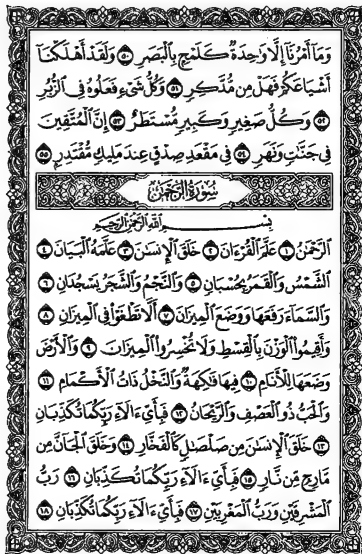 وَمَا أَمْرُنَا إِلَّا وَاحِدَةٌ كَلَمْحٍ بِالْبَصَرِ ٥٠ وَلَقَدْ أَهْلَكْنَا
أَشْيَاعَكُمْ فَهَلْ مِن مُّدَّكِرٍ ٥١ وَكُلُّ شَيْءٍ فَعَلُوهُ فِي الزُّبُرِ
٥٢ وَكُلُّ صَغِيرٍ وَكَبِيرٍ مُّسْتَطَرٌ ٥٣ إِنَّ الْمُتَّقِينَ
فِي جَنَّٰتٍ وَنَهَرٍ ٥٤ فِي مَقْعَدِ صِدْقٍ عِندَ مَلِيكٍ مُّقْتَدِرٍ ٥٥
سُورَةُ الرَّحْمٰن
بِسْمِ اللَّهِ الرَّحْمَٰنِ الرَّحِيمِ
الرَّحْمَٰنُ ١ عَلَّمَ الْقُرْءَانَ ٢ خَلَقَ الْإِنسَٰنَ ٣ عَلَّمَهُ الْبَيَانَ ٤
الشَّمْسُ وَالْقَمَرُ بِحُسْبَانٍ ٥ وَالنَّجْمُ وَالشَّجَرُ يَسْجُدَانِ ٦
وَالسَّمَاءَ رَفَعَهَا وَوَضَعَ الْمِيزَانَ ٧ أَلَّا تَطْغَوْا فِي الْمِيزَانِ ٨
وَأَقِيمُوا الْوَزْنَ بِالْقِسْطِ وَلَا تُخْسِرُوا الْمِيزَانَ ٩ وَالْأَرْضَ
وَضَعَهَا لِلْأَنَامِ ١٠ فِيهَا فَٰكِهَةٌ وَالنَّخْلُ ذَاتُ الْأَكْمَامِ ١١
وَالْحَبُّ ذُو الْعَصْفِ وَالرَّيْحَانُ ١٢ فَبِأَيِّ ءَالَاءِ رَبِّكُمَا تُكَذِّبَانِ
١٣ خَلَقَ الْإِنسَٰنَ مِن صَلْصَٰلٍ كَالْفَخَّارِ ١٤ وَخَلَقَ الْجَانَّ مِن
مَّارِجٍ مِّن نَّارٍ ١٥ فَبِأَيِّ ءَالَاءِ رَبِّكُمَا تُكَذِّبَانِ ١٦ رَبُّ
الْمَشْرِقَيْنِ وَرَبُّ الْمَغْرِبَيْنِ ١٧ فَبِأَيِّ ءَالَاءِ رَبِّكُمَا تُكَذِّبَانِ ١٨